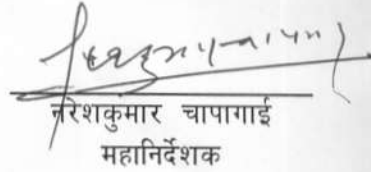 नरेशकुमार चापागाई
महानिर्देशक